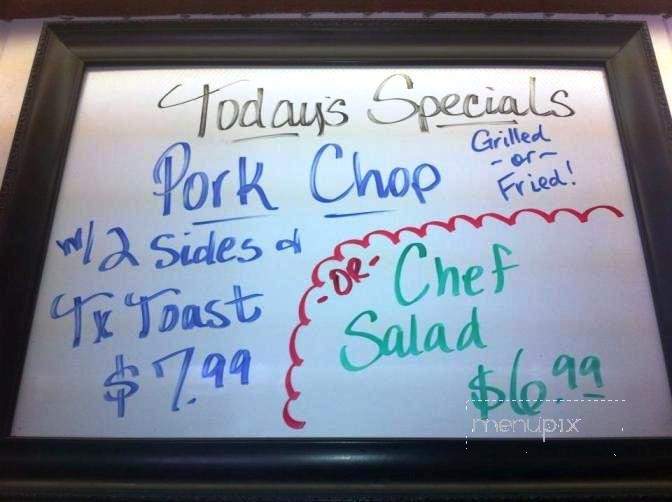 Today's Specials
Pork Chop
Grilled
-or-
Fried!
w/2 Sides &
Tx Toast
$7.99
-OR-
Chef
Salad
$6.99
menupix